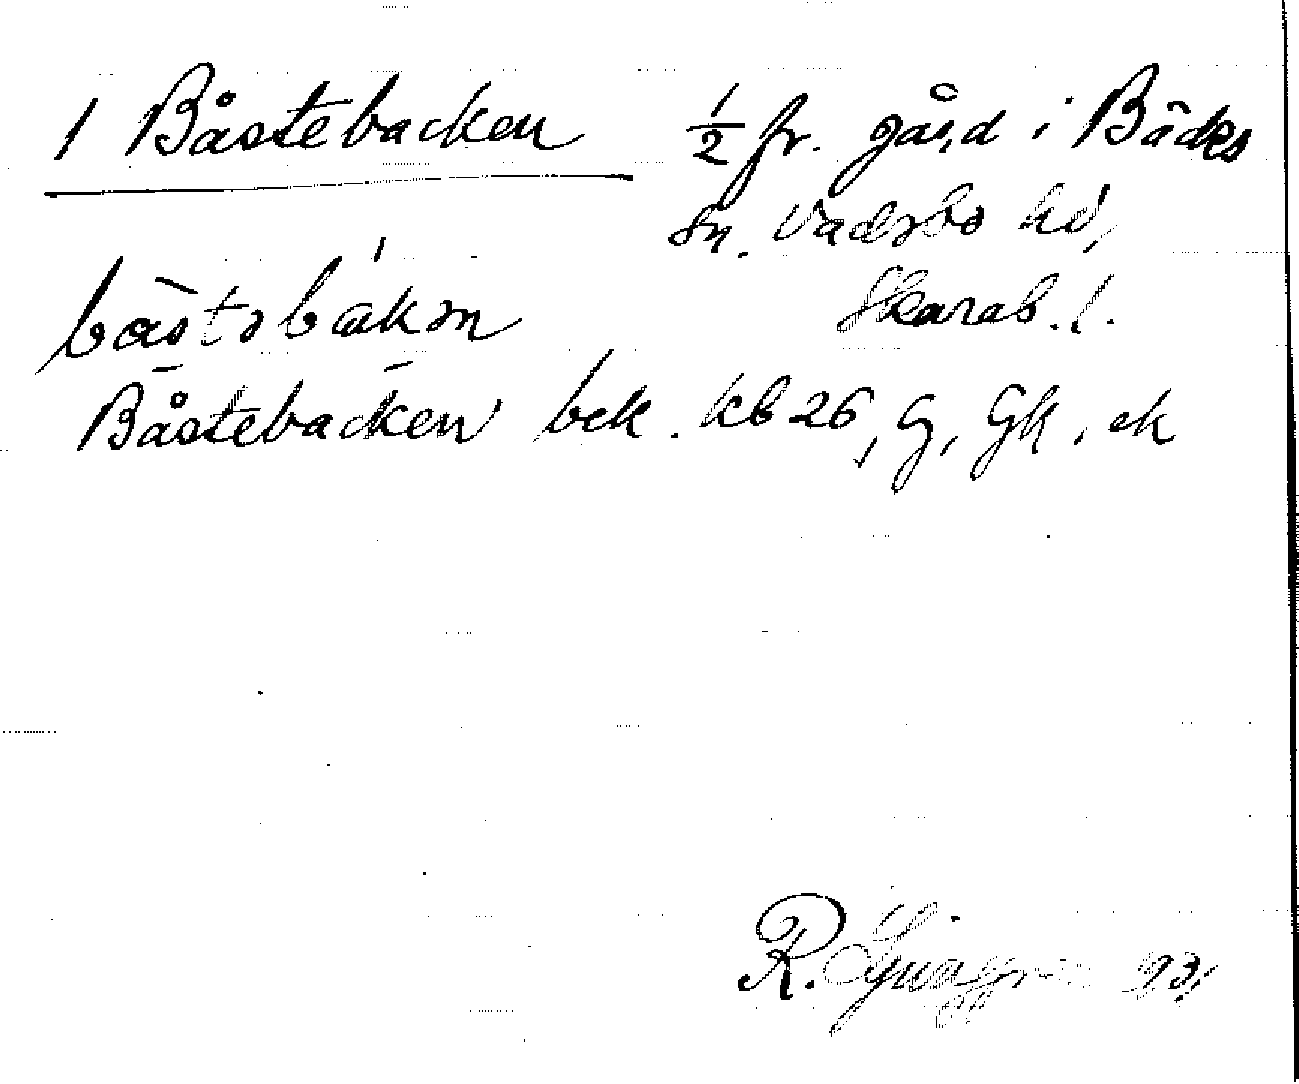 1 Båstebacken 1/2 fr. gård i Bäcks
sn. Vadsbo hd,
Skarab. l.
båstəbakən
Båstebacken bek. kb 26, G, Gk, ek
R.